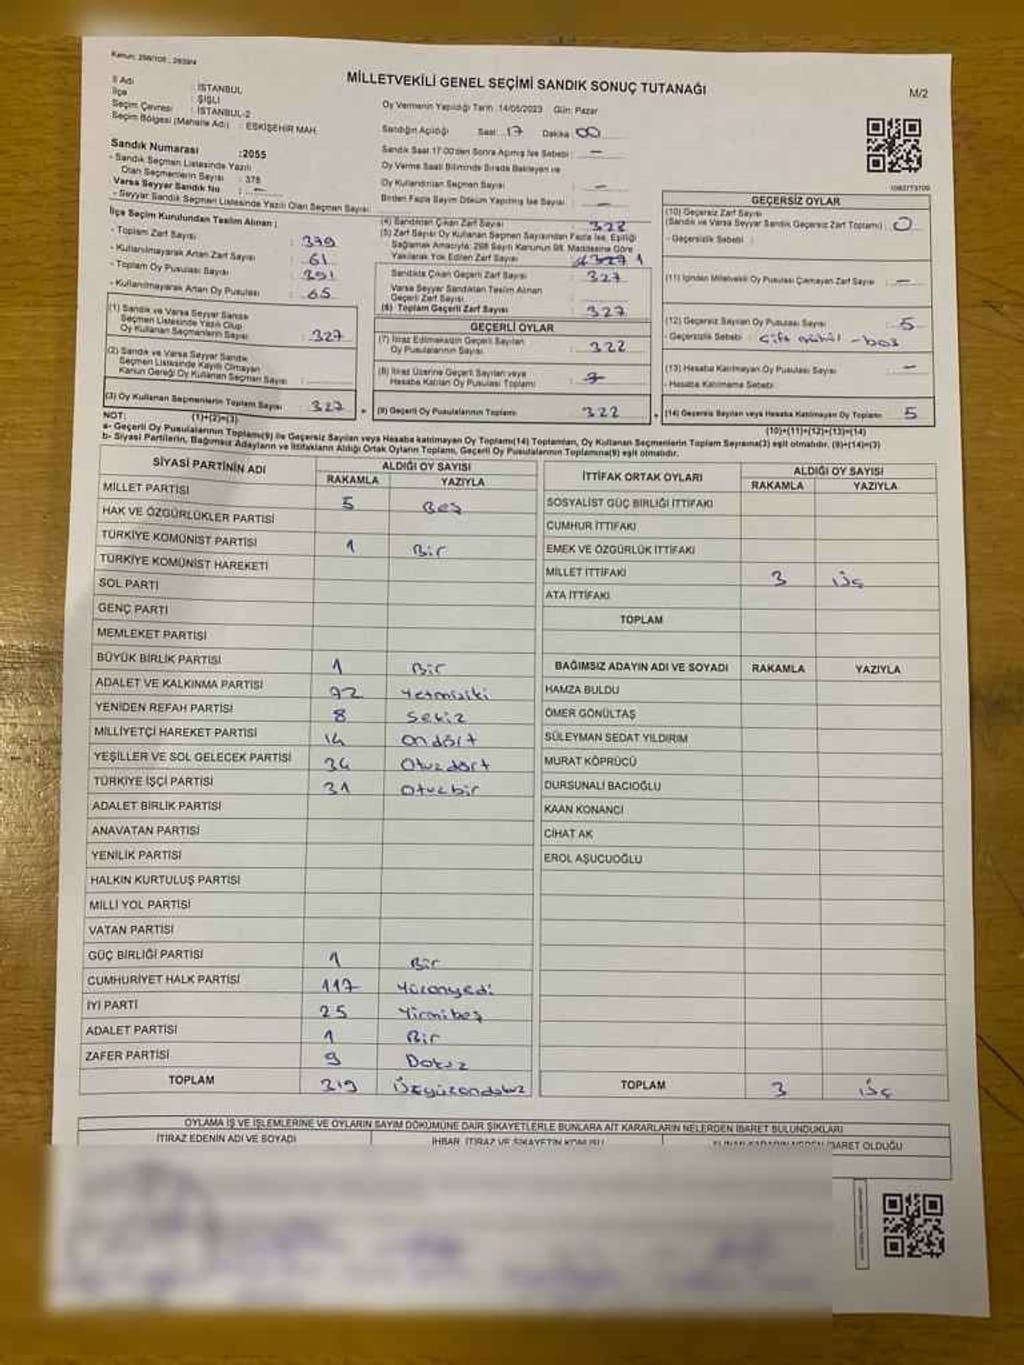 Kanun: 298/105 , 2839/4
MİLLETVEKİLİ GENEL SEÇİMİ SANDIK SONUÇ TUTANAĞI
M/2
İl Adı : İSTANBUL
İlçe : ŞİŞLİ
Seçim Çevresi : İSTANBUL-2
Seçim Bölgesi (Mahalle Adı) : ESKİŞEHİR MAH.
Sandık Numarası :2055
- Sandık Seçmen Listesinde Yazılı
Olan Seçmenlerin Sayısı : 378
Varsa Seyyar Sandık No : —
- Seyyar Sandık Seçmen Listesinde Yazılı Olan Seçmen Sayısı:
Oy Vermenin Yapıldığı Tarih :14/05/2023 Gün: Pazar
Sandığın Açılışı Saat 17 Dakika 00
Sandık Saat 17:00'den Sonra Açılmış İse Sebebi : —
Oy Verme Saati Bitiminde Sırada Bekleyen ve
Oy Kullandırılan Seçmen Sayısı : —
Birden Fazla Sayım Döküm Yapılmış İse Sayısı : —
İlçe Seçim Kurulundan Teslim Alınan ;
- Toplam Zarf Sayısı : 379
- Kullanılmayarak Artan Zarf Sayısı : 61
- Toplam Oy Pusulası Sayısı : 391
- Kullanılmayarak Artan Oy Pusulası : 65
(1) Sandık ve Varsa Seyyar Sandık
Seçmen Listesinde Yazılı Olup
Oy Kullanan Seçmenlerin Sayısı : 327
(2) Sandık ve Varsa Seyyar Sandık
Seçmen Listesinde Kayıtlı Olmayan
Kanun Gereği Oy Kullanan Seçmen Sayısı :
(3) Oy Kullanan Seçmenlerin Toplam Sayısı : 327
(1)+(2)=(3)
(4) Sandıktan Çıkan Zarf Sayısı : 328
(5) Zarf Sayısı Oy Kullanan Seçmen Sayısından Fazla İse, Eşitliği
Sağlamak Amacıyla; 298 Sayılı Kanunun 98. Maddesine Göre
Yakılarak Yok Edilen Zarf Sayısı : 1
Sandıkta Çıkan Geçerli Zarf Sayısı : 327
Varsa Seyyar Sandıktan Teslim Alınan
Geçerli Zarf Sayısı :
(6) Toplam Geçerli Zarf Sayısı : 327
GEÇERLİ OYLAR
(7) İtiraz Edilmeksizin Geçerli Sayılan
Oy Pusulalarının Sayısı : 322
(8) İtiraz Üzerine Geçerli Sayılan veya
Hesaba Katılan Oy Pusulası Toplamı :
(9) Geçerli Oy Pusulalarının Toplamı : 322
10827T3700
GEÇERSİZ OYLAR
(10) Geçersiz Zarf Sayısı
(Sandık ve Varsa Seyyar Sandık Geçersiz Zarf Toplamı) : 0
- Geçersizlik Sebebi :
(11) İçinden Milletvekili Oy Pusulası Çıkmayan Zarf Sayısı : —
(12) Geçersiz Sayılan Oy Pusulası Sayısı : 5
- Geçersizlik Sebebi : çift mühür - boş
(13) Hesaba Katılmayan Oy Pusulası Sayısı : —
- Hesaba Katılmama Sebebi
(14) Geçersiz Sayılan veya Hesaba Katılmayan Oy Toplamı : 5
(10)+(11)+(12)+(13)=(14)
NOT:
a- Geçerli Oy Pusulaları Toplamı(9) ile Geçersiz Sayılan veya Hesaba katılmayan Oy Toplamı(14) Toplamları, Oy Kullanan Seçmenlerin Toplam Sayısına(3) eşit olmalıdır. (9)+(14)=(3)
b- Siyasi Partilerin, Bağımsız Adayların ve İttifakların Aldığı Ortak Oyların Toplamı, Geçerli Oy Pusulalarının Toplamına(9) eşit olmalıdır.
SİYASİ PARTİNİN ADI ALDIĞI OY SAYISI
RAKAMLA YAZIYLA
MİLLET PARTİSİ 5 Beş
HAK VE ÖZGÜRLÜKLER PARTİSİ
TÜRKİYE KOMÜNİST PARTİSİ 1 Bir
TÜRKİYE KOMÜNİST HAREKETİ
SOL PARTİ
GENÇ PARTİ
MEMLEKET PARTİSİ
BÜYÜK BİRLİK PARTİSİ 1 Bir
ADALET VE KALKINMA PARTİSİ 72 Yetmişiki
YENİDEN REFAH PARTİSİ 8 Sekiz
MİLLİYETÇİ HAREKET PARTİSİ 14 Ondört
YEŞİLLER VE SOL GELECEK PARTİSİ 34 Otuzdört
TÜRKİYE İŞÇİ PARTİSİ 31 Otuzbir
ADALET BİRLİK PARTİSİ
ANAVATAN PARTİSİ
YENİLİK PARTİSİ
HALKIN KURTULUŞ PARTİSİ
MİLLİ YOL PARTİSİ
VATAN PARTİSİ
GÜÇ BİRLİĞİ PARTİSİ 1 Bir
CUMHURİYET HALK PARTİSİ 117 Yüzonyedi
İYİ PARTİ 25 Yirmibeş
ADALET PARTİSİ 1 Bir
ZAFER PARTİSİ 9 Dokuz
TOPLAM 319 Üçyüzondokuz
İTTİFAK ORTAK OYLARI ALDIĞI OY SAYISI
RAKAMLA YAZIYLA
SOSYALİST GÜÇ BİRLİĞİ İTTİFAKI
CUMHUR İTTİFAKI
EMEK VE ÖZGÜRLÜK İTTİFAKI
MİLLET İTTİFAKI 3 üç
ATA İTTİFAKI
TOPLAM
BAĞIMSIZ ADAYIN ADI VE SOYADI RAKAMLA YAZIYLA
HAMZA BULDU
ÖMER GÖNÜLTAŞ
SÜLEYMAN SEDAT YILDIRIM
MURAT KÖPRÜCÜ
DURSUNALİ BACIOĞLU
KAAN KONANÇ
CİHAT AK
EROL AŞUCUOĞLU
TOPLAM 3 üç
OYLAMA İŞ VE İŞLEMLERİNE VE OYLARIN SAYIM DÖKÜMÜNE DAİR ŞİKAYETLERLE BUNLARA AİT KARARLARIN NELERDEN İBARET BULUNDUKLARI
İTİRAZ EDENİN ADI VE SOYADI İHBAR, İTİRAZ VE ŞİKAYETİN KONUSU İBARET OLDUĞU